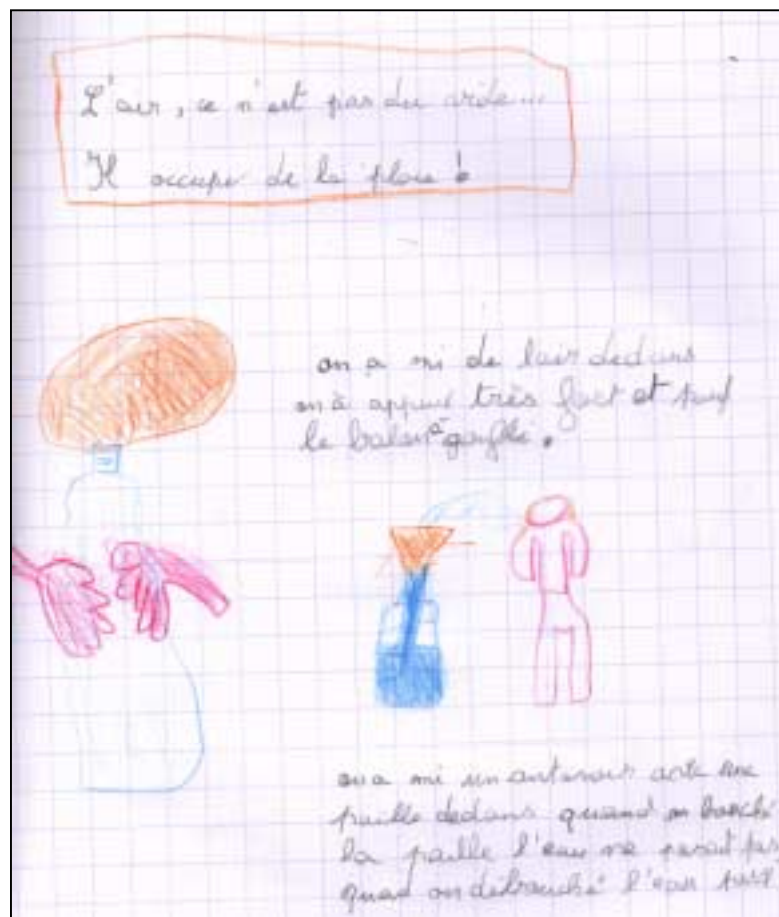 L'air, ce n'est pas du vide...
Il occupe de la place !
on a mi de lair dedans
on a appuié très fort et pouf
le balon a gonflé.
on a mi un antonoir avec une
paille dedans quand on bouche
la paille l'eau ne passait pas
quand on débouche l'eau passe